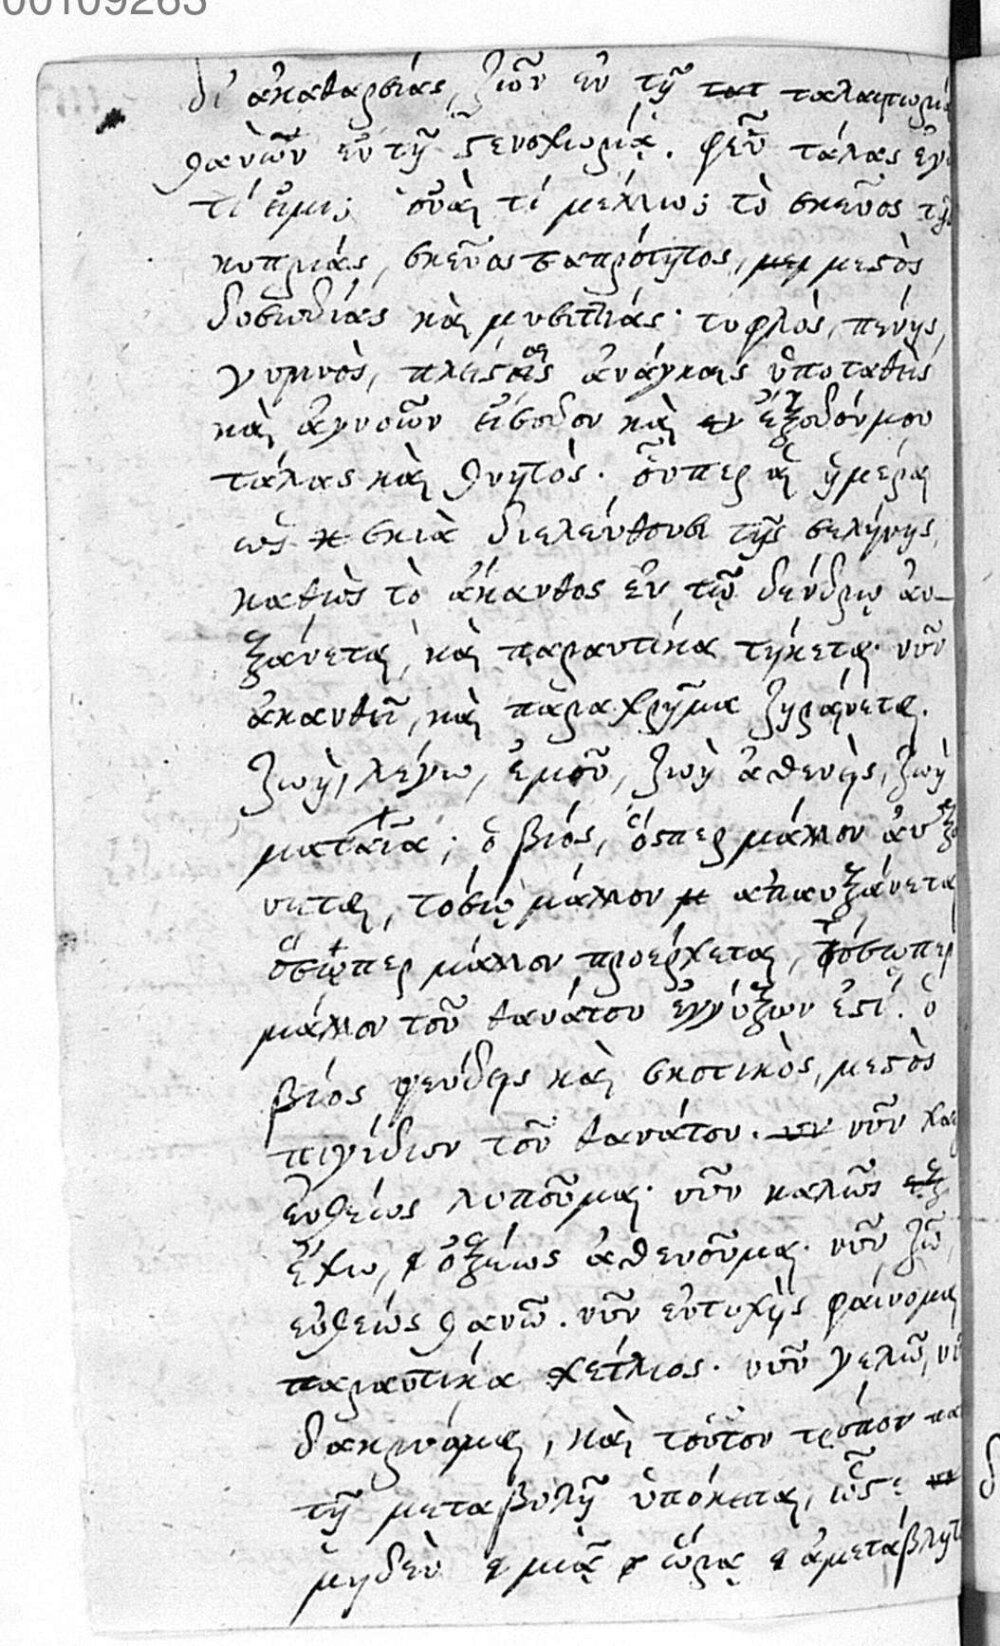 00109263
δι' ἀκαθαρσίας, ζιῶν ἐν τῇ τατ ταλαιπωρίᾳ
θανιῶν ἐν τῇ ϛενοχωρίᾳ. φεῦ τάλας ἐγὼ
τί εἰμι; οὐαὶ τί μελλιω; τὸ σκεῦος τῆς
κοπρίας, σκεῦος σαπρότητος, μεϛὸς
δυσωδίας καὶ μυσιτλίας· τυφλὸς, πένης,
γυμνὸς, πλείϛαις ἀνάγκαις ὑποταθεὶς
καὶ ἀγνοῶν εἴσοδον καὶ ἐν ἔξοδόν μου
τάλας καὶ θνητὸς. οὗπερ αἱ ἡμέραι
ὡς σκιὰ διελεύθουσι τῆς σελήνης,
καθὼς τὸ ἄκανθος ἐν τῷ δένδρῳ αὐ-
ξάνεται, καὶ παραυτίκα τήκεται· νῦν
ἀκανθεῖ, καὶ παραχρῆμα ξηραίνεται.
ζωὴ, λέγω, ἐμοῦ, ζωὴ ἀσθενὴς, ζωὴ
ματαῖα; ὁ βίος, ὅσπερ μᾶλλον αὐξά
νεται, τόσῳ μᾶλλον ἀπαυξάνεται
ὅσῳπερ μᾶλλον προέρχεται, τόσωπερ
μᾶλλον τοῦ θανάτου ἐγγύξων ἐϛί. ὁ
βίος ψευδὴς καὶ σκοτικὸς, μεϛὸς
παγίδιων τοῦ θανάτου. νῦν
εὐθείως λυποῦμαι· νῦν καλῶς
ἔχω, ὀξείως ἀσθενοῦμαι· νῦν ζῶ,
εὐθείως θανῶ. νῦν εὐτυχὴς φαίνομαι
παραυτίκα σχέτλιος. νῦν γελῶ, νῦ
δακρύομαι, καὶ τοῦτον τρόπον
τῇ μεταβολῇ ὑπόκειται, ὥϛε
μηδὲν μιᾷ ὥρᾳ ἀμετάβλητ